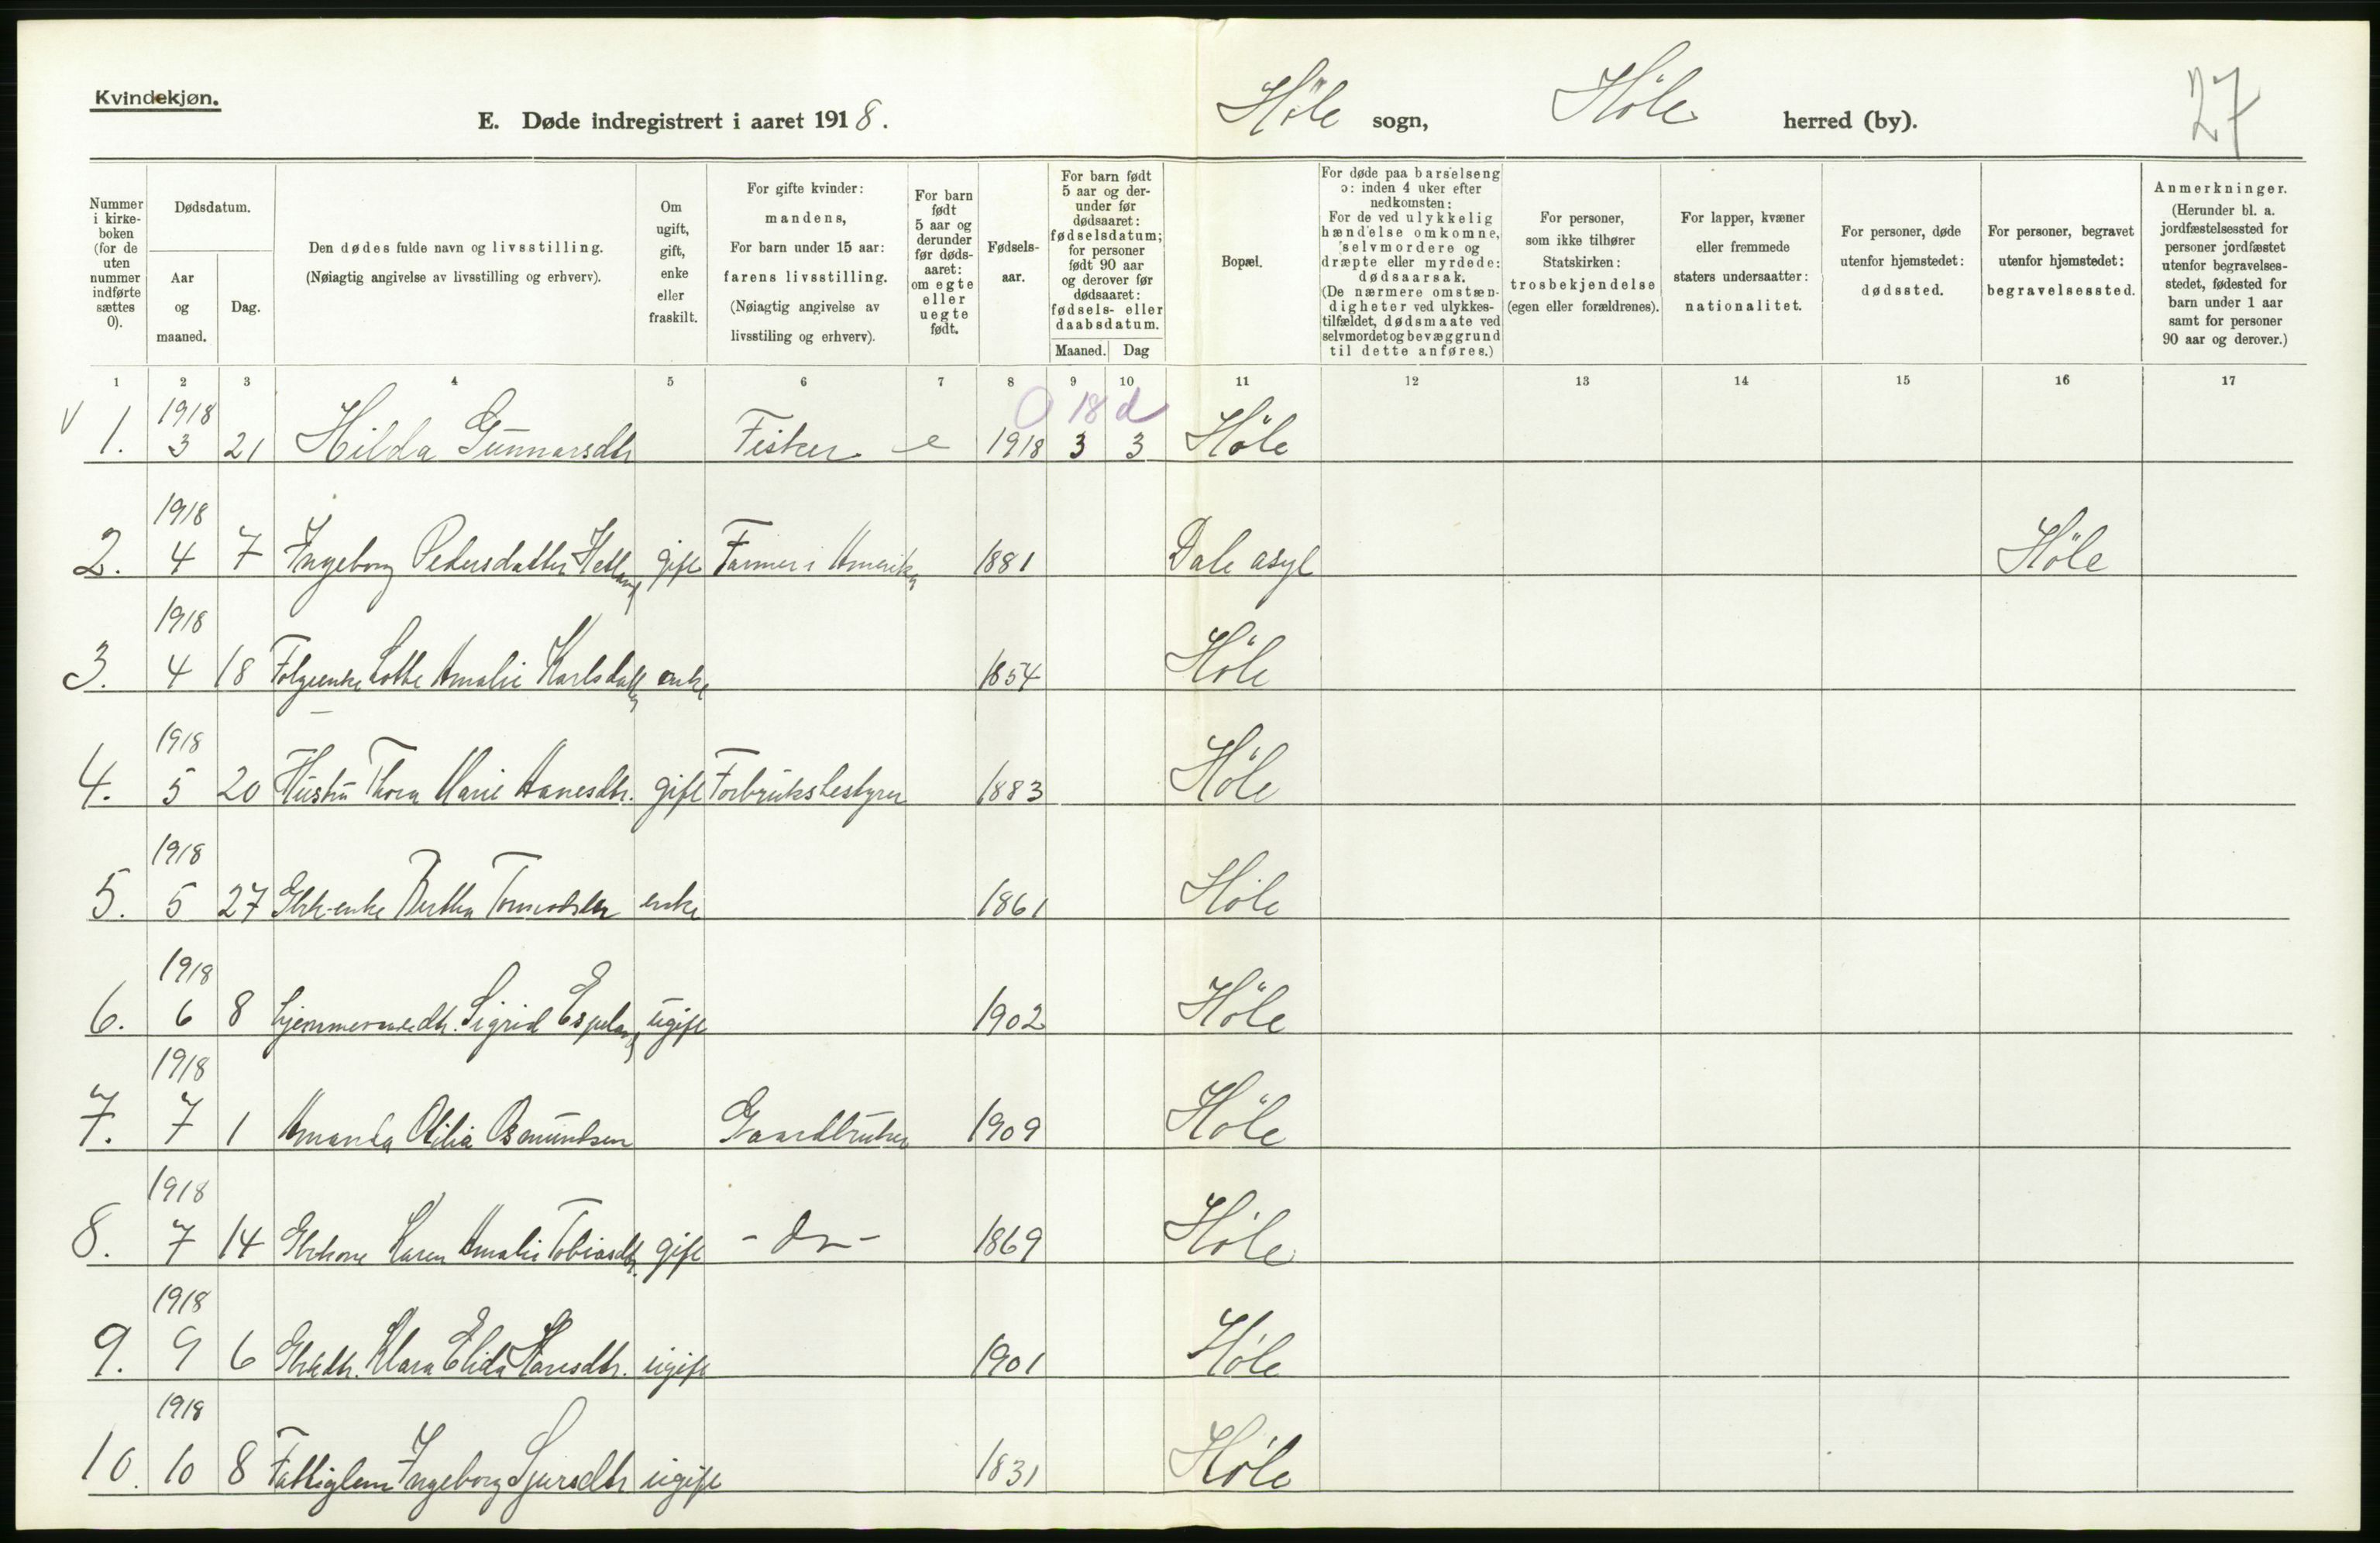 Kvindekjøn.
E. Døde indregistrert i aaret 1918.
Høle sogn, Høle herred (by).
27
Nummer i kirkeboken (for de uten nummer indførte sættes 0).
Dødsdatum.
Aar og maaned.
Dag.
Den dødes fulde navn og livsstilling.
(Nøiagtig angivelse av livsstilling og erhverv).
Om ugift, gift, enke eller fraskilt.
For gifte kvinder: mandens,
For barn under 15 aar: farens livsstilling.
(Nøiagtig angivelse av livsstiling og erhverv).
For barn født 5 aar og derunder før dødsaaret: om egte eller uegte født.
Fødselsaar.
For barn født 5 aar og derunder før dødsaaret: fødselsdatum; for personer født 90 aar og derover før dødsaaret: fødsels- eller daabsdatum.
Maaned. Dag
Bopæl.
For døde paa barselseng ɔ: inden 4 uker efter nedkomsten:
For de ved ulykkelig hændelse omkomne, selvmordere og dræpte eller myrdede: dødsaarsak.
(De nærmere omstændigheter ved ulykkestilfældet, dødsmaate ved selvmordet og bevæggrund til dette anføres.)
For personer, som ikke tilhører Statskirken: trosbekjendelse (egen eller forældrenes).
For lapper, kvæner eller fremmede staters undersaatter: nationalitet.
For personer, døde utenfor hjemstedet: dødssted.
For personer, begravet utenfor hjemstedet: begravelsessted.
Anmerkninger.
(Herunder bl. a. jordfæstelsessted for personer jordfæstet utenfor begravelsesstedet, fødested for barn under 1 aar samt for personer 90 aar og derover.)
1 2 3 4 5 6 7 8 9 10 11 12 13 14 15 16 17
0 18 d
V 1. 1918 3 21 Hilda Gunnarsdtr Fisker e 1918 3 3 Høle
2. 1918 4 7 Ingeborg Pedersdatter Hetland gift Farmer i Amerika 1881 Dale asyl Høle
3. 1918 4 18 Folgeenke Lotte Amalie Karlsdatter enke 1854 Høle
4. 1918 5 20 Hustru Thora Marie Hanesdtr. gift Forbruksbestyrer 1883 Høle
5. 1918 5 27 Gbr.enke Bertha enke 1861 Høle
6. 1918 6 8 hjemmevær.dtr. Sigrid Espeland ugift 1902 Høle
7. 1918 7 1 Amanda Otilia Osmundsen Gaardbruker 1909 Høle
8. 1918 7 14 Gbrkone Karen Amalie Tobiasdtr. gift - do - 1869 Høle
9. 1918 9 6 Gbrkdtr. Klara Elida Hansdtr. ugift 1901 Høle
10. 1918 10 8 Fattiglem Ingeborg Sjursdtr ugift 1831 Høle